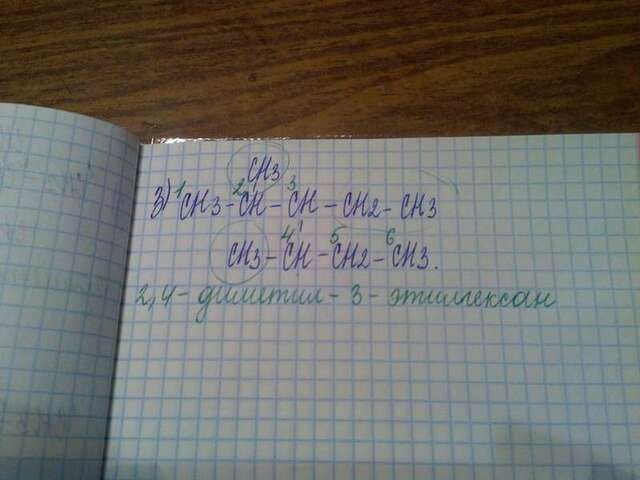 CH3
3) 1 CH3 - 2 CH - 3 CH - CH2 - CH3
CH3 - 4 CH - 5 CH2 - 6 CH3.
2,4 - диметил - 3 - этилгексан